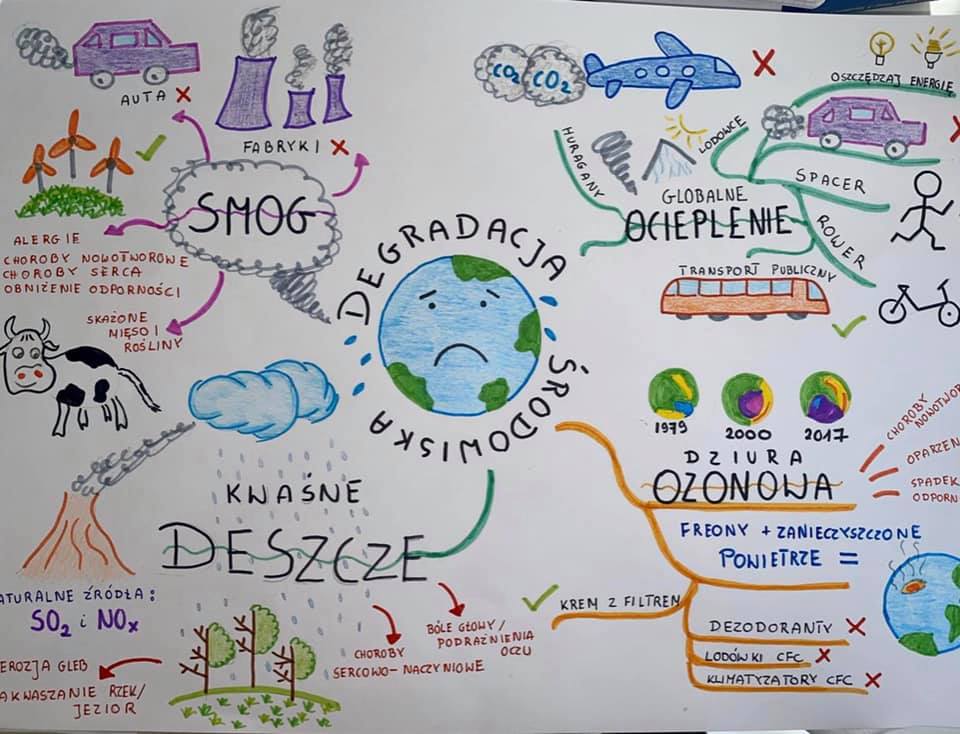 AUTA
FABRYKI
SMOG
ALERGIE
CHOROBY NOWOTWOROWE
CHOROBY SERCA
OBNIŻENIE ODPORNOŚCI
SKAŻONE
MIĘSO I
ROŚLINY
CO2 CO2
OSZCZĘDZAJ ENERGIĘ
HURAGANY
LODOWCE
SPACER
ROWER
GLOBALNE
OCIEPLENIE
TRANSPORT PUBLICZNY
DEGRADACJA
ŚRODOWISKA
1979
2000
2017
DZIURA
OZONOWA
CHOROBY
NOWOTWOR
OPARZEN
SPADEK
ODPORN
FREONY + ZANIECZYSZCZONE
POWIETRZE =
KREM Z FILTREM
DEZODORANTY
LODÓWKI CFC
KLIMATYZATORY CFC
KWAŚNE
DESZCZE
ATURALNE ŹRÓDŁA:
SO2 i NOx
EROZJA GLEB
AKWASZANIE RZEK/
JEZIOR
CHOROBY
SERCOWO-NACZYNIOWE
BÓLE GŁOWY/
PODRAŻNIENIA
OCZU